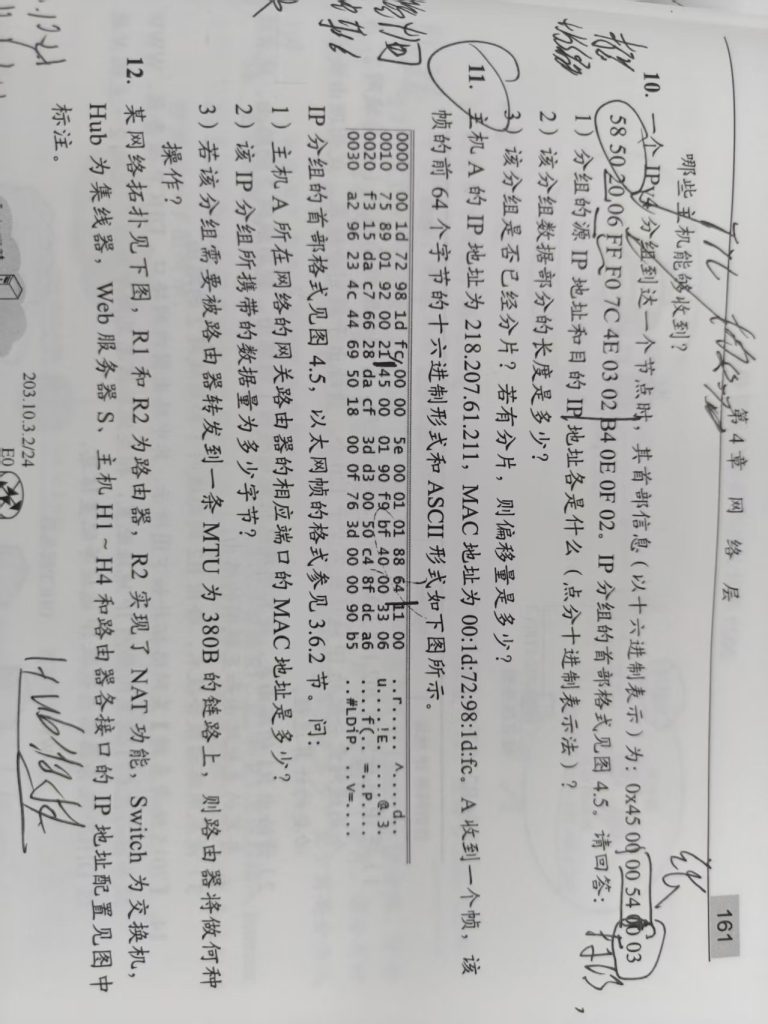 第 4 章 网 络 层 161
哪些主机能够收到?
10. 一个 IPv4 分组到达一个节点时,其首部信息(以十六进制表示)为:0x45 00 00 54 00 03
58 50 20 06 FF F0 7C 4E 03 02 B4 0E 0F 02。IP 分组的首部格式见图 4.5。请回答:
1)分组的源 IP 地址和目的 IP 地址各是什么(点分十进制表示法)?
2)该分组数据部分的长度是多少?
3)该分组是否已经分片?若有分片,则偏移量是多少?
11. 主机 A 的 IP 地址为 218.207.61.211,MAC 地址为 00:1d:72:98:1d:fc。A 收到一个帧,该
帧的前 64 个字节的十六进制形式和 ASCII 形式如下图所示。
0000 00 1d 72 98 1d fc 00 00 5e 00 01 01 88 64 11 00 ..r..... ^....d..
0010 75 89 01 92 00 21 45 00 01 90 f9 bf 40 00 33 06 u....!E. ....@.3.
0020 f3 15 da c7 66 28 da cf 3d d3 00 50 c4 8f dc a6 ....f(.. =..P....
0030 a2 96 23 4c 44 69 50 18 00 0f 76 3d 00 00 90 b5 ..#LDiP. ..v=....
IP 分组的首部格式见图 4.5,以太网帧的格式参见 3.6.2 节。问:
1)主机 A 所在网络的网关路由器的相应端口的 MAC 地址是多少?
2)该 IP 分组所携带的数据量为多少字节?
3)若该分组需要被路由器转发到一条 MTU 为 380B 的链路上,则路由器将做何种
操作?
12. 某网络拓扑见下图,R1 和 R2 为路由器,R2 实现了 NAT 功能,Switch 为交换机,
Hub 为集线器,Web 服务器 S、主机 H1~H4 和路由器各接口的 IP 地址配置见图中
标注。
203.10.3.2/24
E0